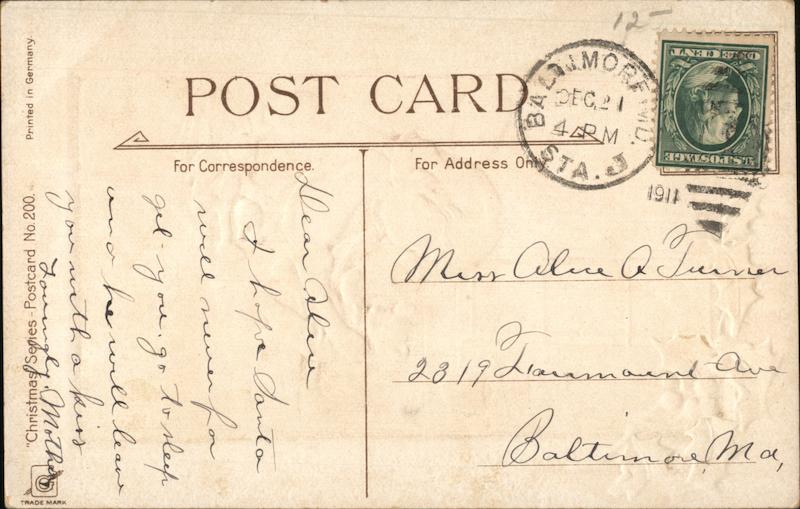 12-
POST CARD
For Correspondence.
For Address Only
BALTIMORE, MD.
DEC. 21
4-PM
STA. J
1911
ONE CENT
U.S. POSTAGE
Printed in Germany.
"Christmas" Series - Postcard No. 200.
TRADE MARK
Dear Alice
I hope Santa
will never for
get you. go to sleep
and he will leave
you with a kiss
Lovingly, Mother
Miss Alice A Turner
2319 Ave
Baltimore, Md,